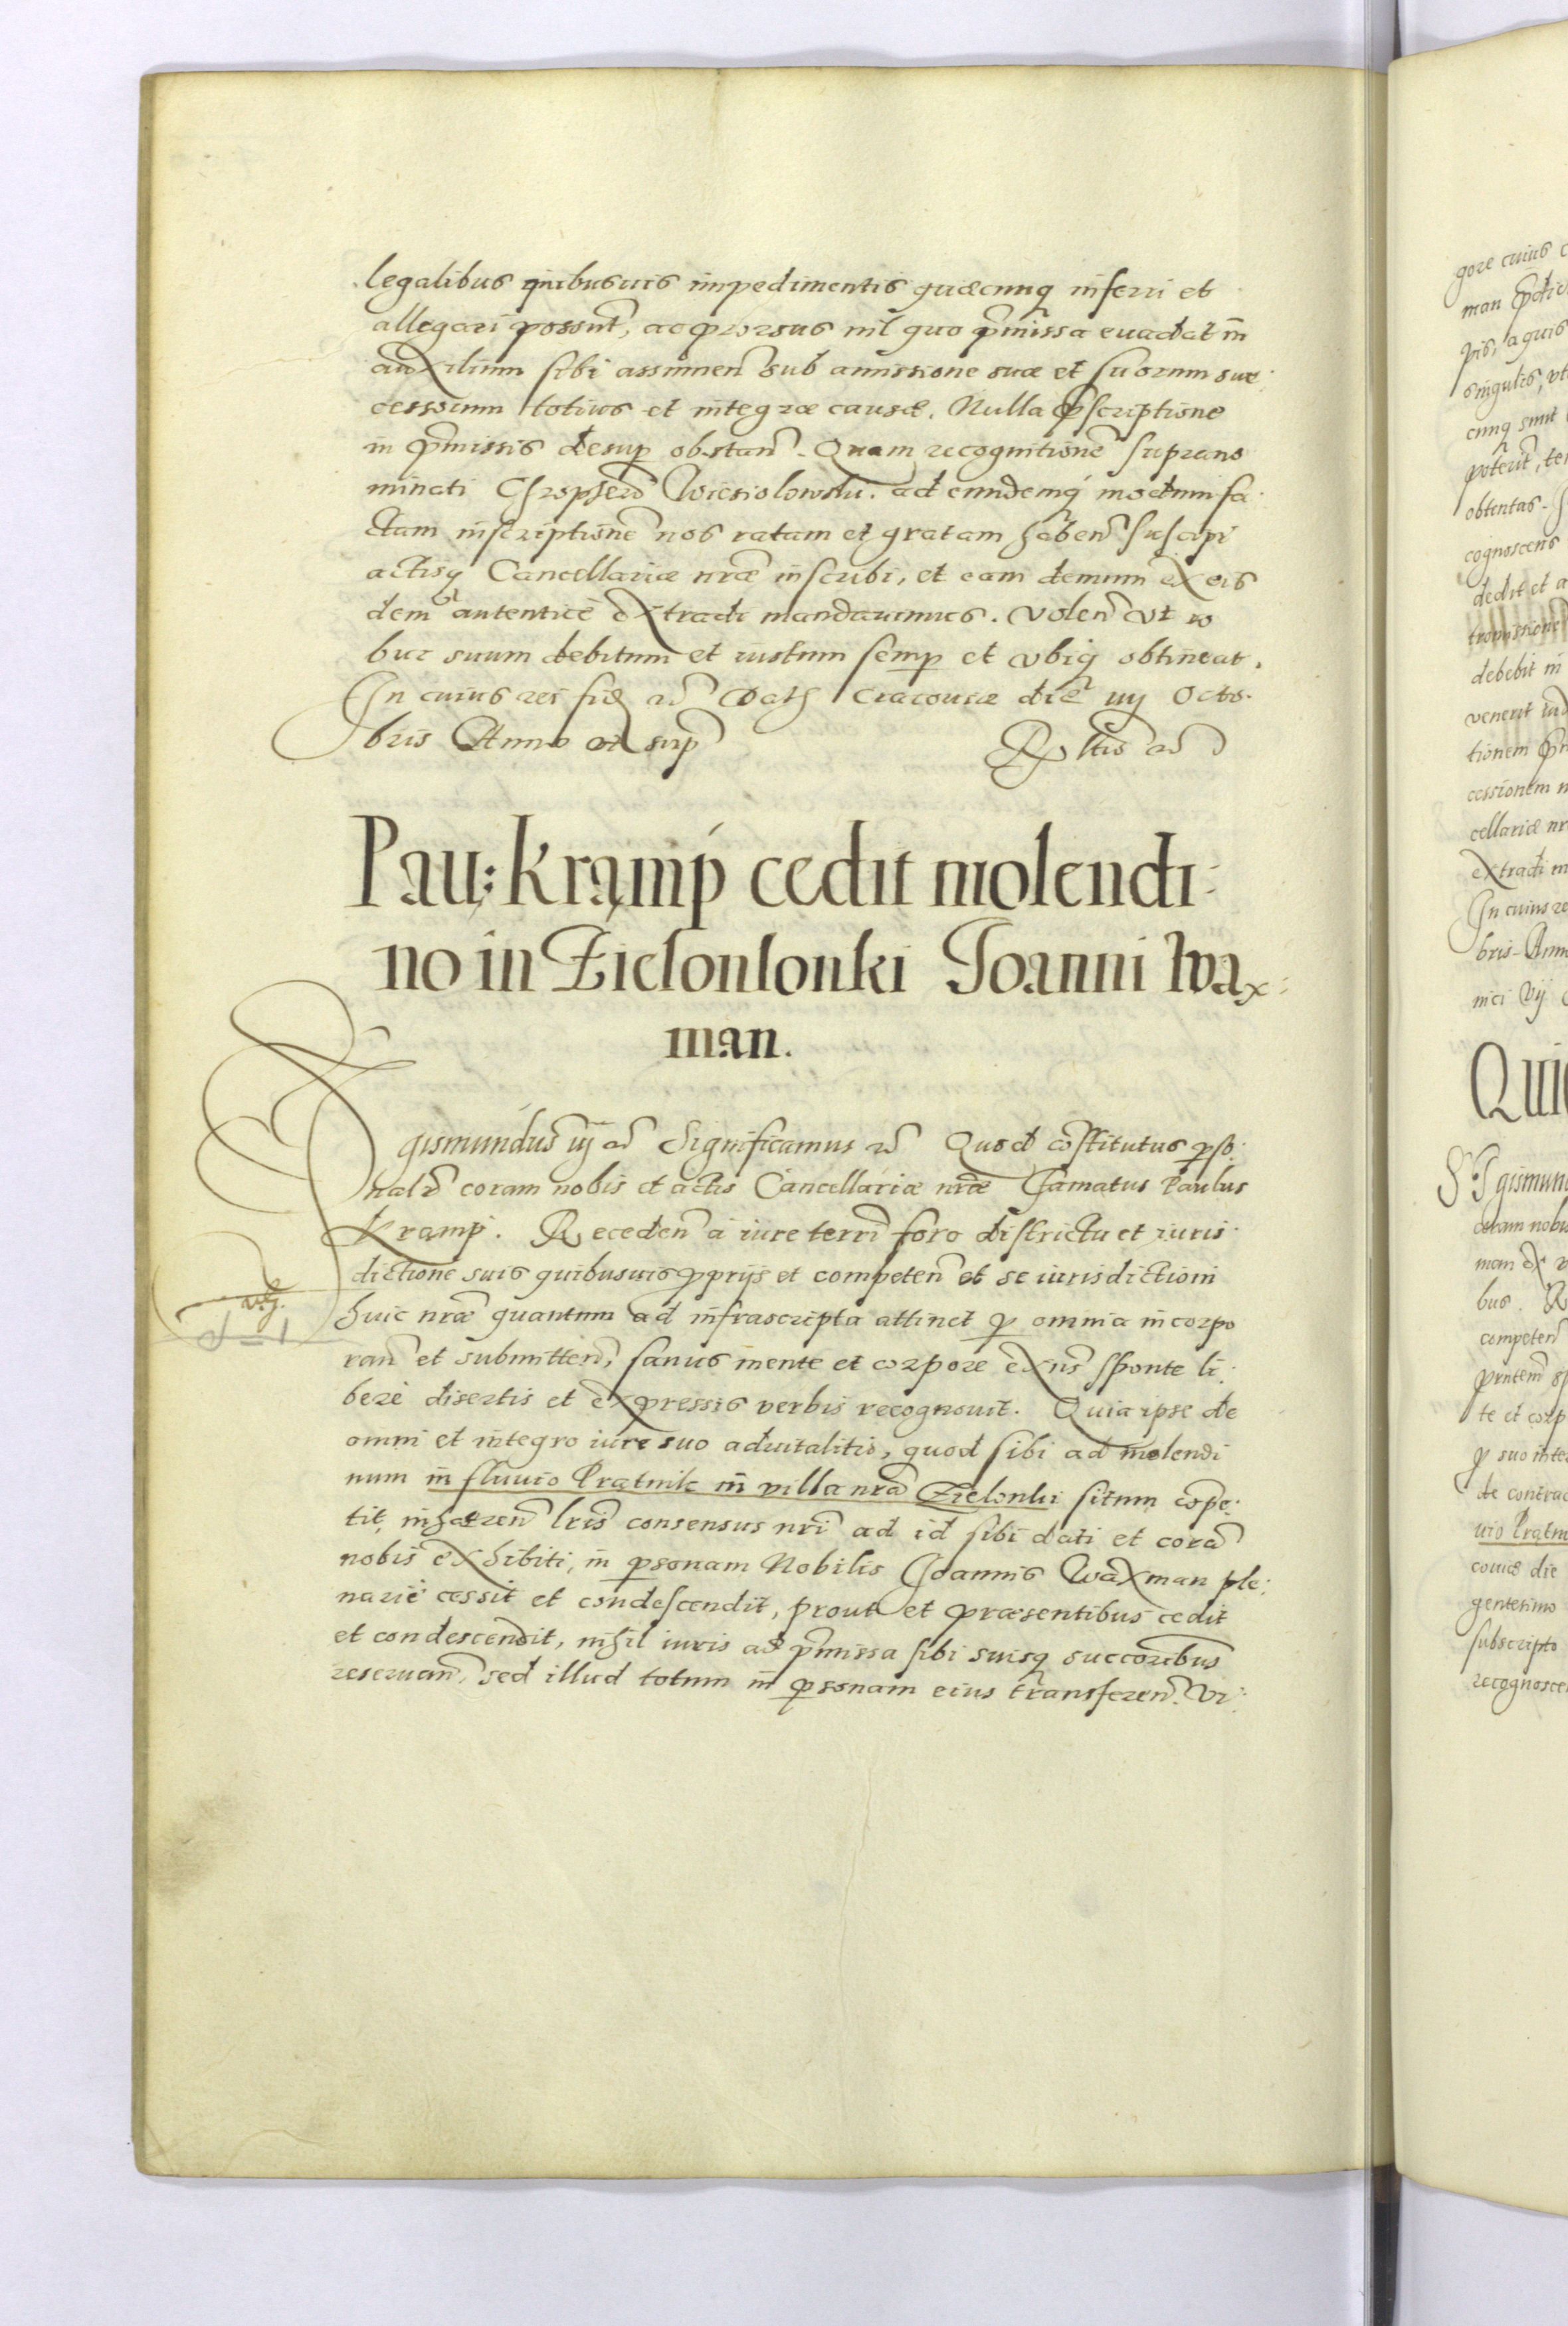 legalibus quibusuis impedimentis quæcunq inferri et
allegari possint, ac prorsus nil quo pmissa euadat in
auxilium sibi assumen sub amissione suæ et suorum suc:
cessorum totius et integræ causæ. Nulla pscriptione
in pmissis desup obstan. Quam recognitione suprano
minati Chropsero Wiesiolowski. ad eundemq modum fa:
ctam inscriptione nos ratam et gratam haben suscipi
actisq Cancellariæ nræ inscribi, et eam demum ex eis
dem autenticè extradi mandauimus. Volen vt ro
bur suum debitum et iustum semp et vbiq obtineat.
In cuius rei fid Dat Cracouiæ die iiij Octo.
bris Anno vt sup Rltis
Pau: Kramp cedit molendi:
no in Zielonlonki Joanni Wax:
man.
Sigismundus iij Significamus Quod constitutus pso:
nalr coram nobis et actis Cancellariæ nræ Famatus Paulus
Kramp. Receden à iure terri foro districtu et iuris:
dictione suis quibusuis pprijs et competen et se iurisdictioni
huic nræ quantum ad infrascripta attinet p omnia incorpo
ran et submitten, sanus mente et corpore exns sponte li:
berè disertis et expressis verbis recognouit. Quia ipse de
omni et integro iure suo aduitalitio, quod sibi ad molendi
num in fluuio Prątnik in villa nra Zielonki situm compe:
tit, inhæren lris consensus nri ad id sibi dati et cora
nobis exhibiti, in psonam Nobilis Joannis Waxman ple:
nariè cessit et condescendit, prout et præsentibus cedit
et condescendit, nihil iuris ad pmissa sibi suisq succoribus
reseruan, sed illud totum in psonam eius transferen. Vi:
gore cuius
man
pis, a quis
singulis, vt
cunq sunt
poterit, te
obtentas.
cognoscens
dedit et a
tromissione
debebit in
venerit
tionem
cessionem n
cellariæ nr
extradi m
In cuius re
bris. Ann
nici Vij
Qui
Sigismun
coram nobis
man ex
bus. R
competen
pntem
te et corp
p suo inte
de contrac
uio Pratn
couiæ die
gentesimo
subscripto
recognosce